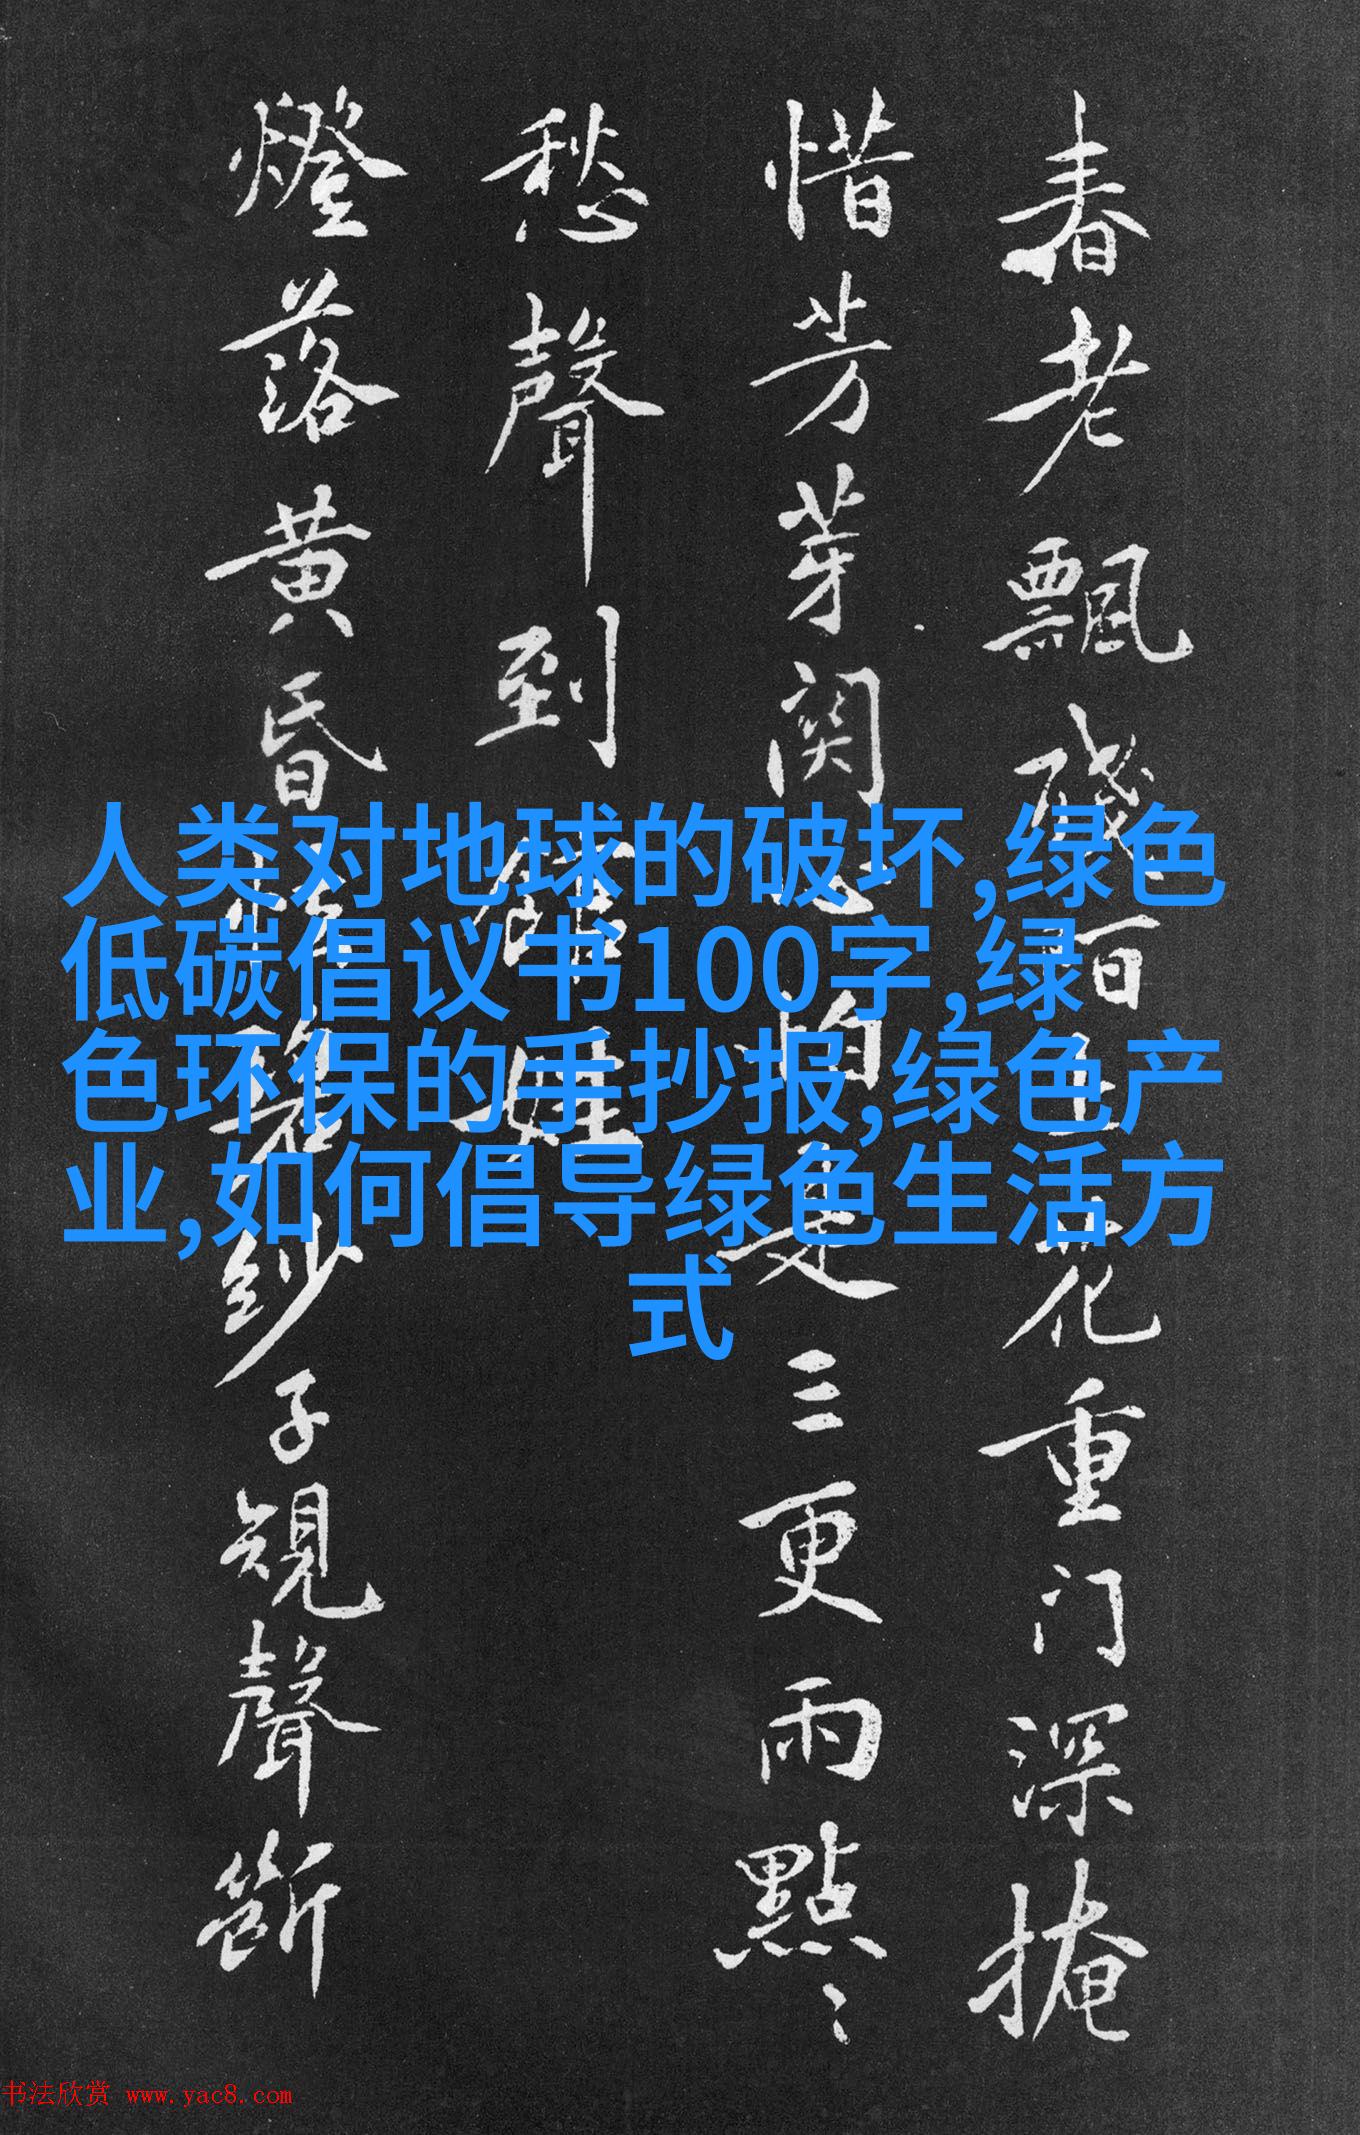 春老飄殘百上花重门深掩
惜芳芽関心怕是三更雨點〻
愁聲到
燈落黄昏
紗子規聲斷
人类对地球的破坏,绿色
低碳倡议书100字,绿
色环保的手抄报,绿色产
业,如何倡导绿色生活方
式
书法欣赏 www.yac8.com